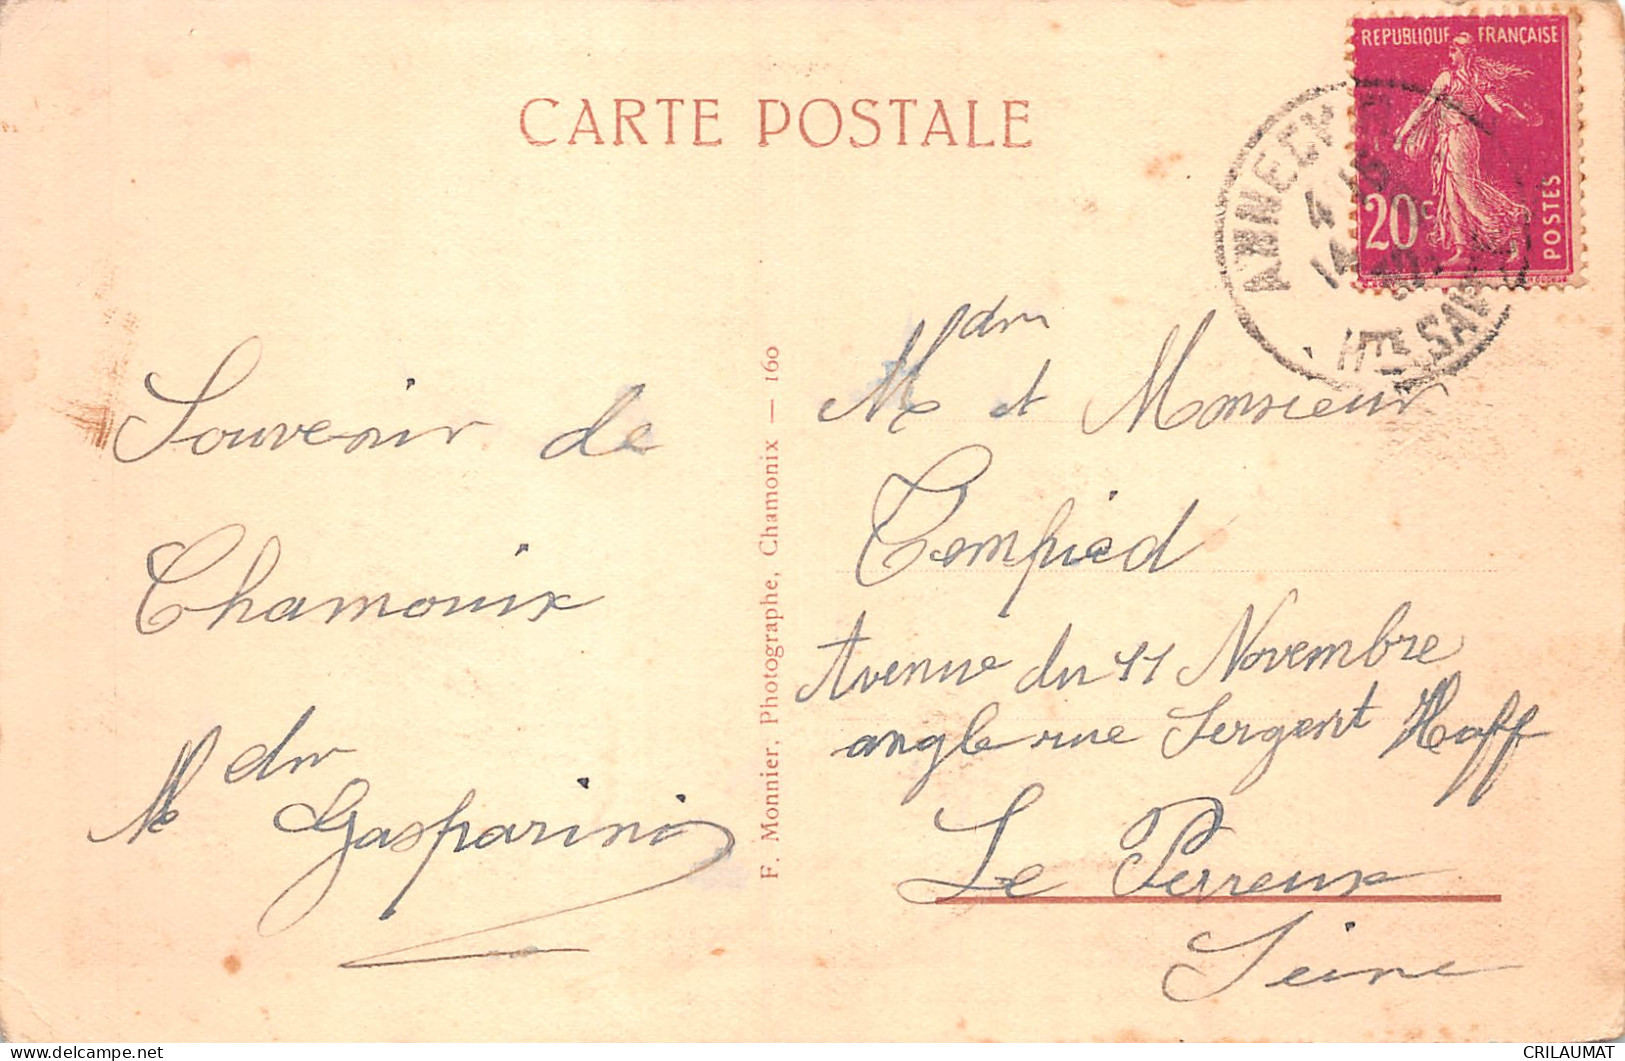 CARTE POSTALE
REPUBLIQUE FRANÇAISE
20c
POSTES
ANNECY
Hte SAVOIE
Souvenir de
Chamonix
Mdm
Gasparini
F. Monnier, Photographe, Chamonix — 160
Mdm
Me et Monsieur
Compied
Avenue du 11 Novembre
angle rue Sergent Hoff
Le Perreux
Seine
CRILAUMAT